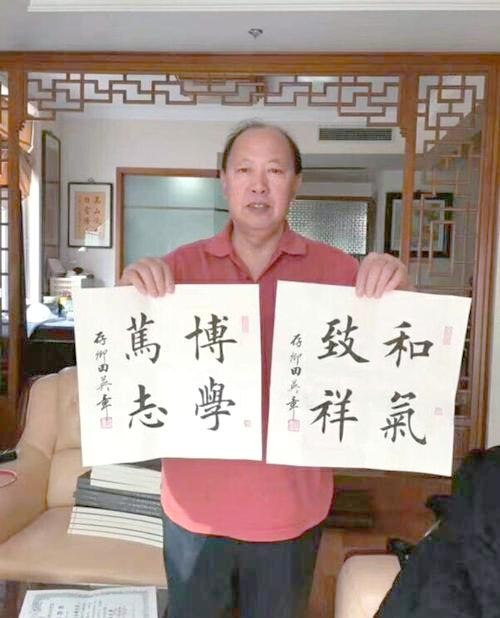 博學
篤志
存卿田英章
和氣
致祥
存卿田英章